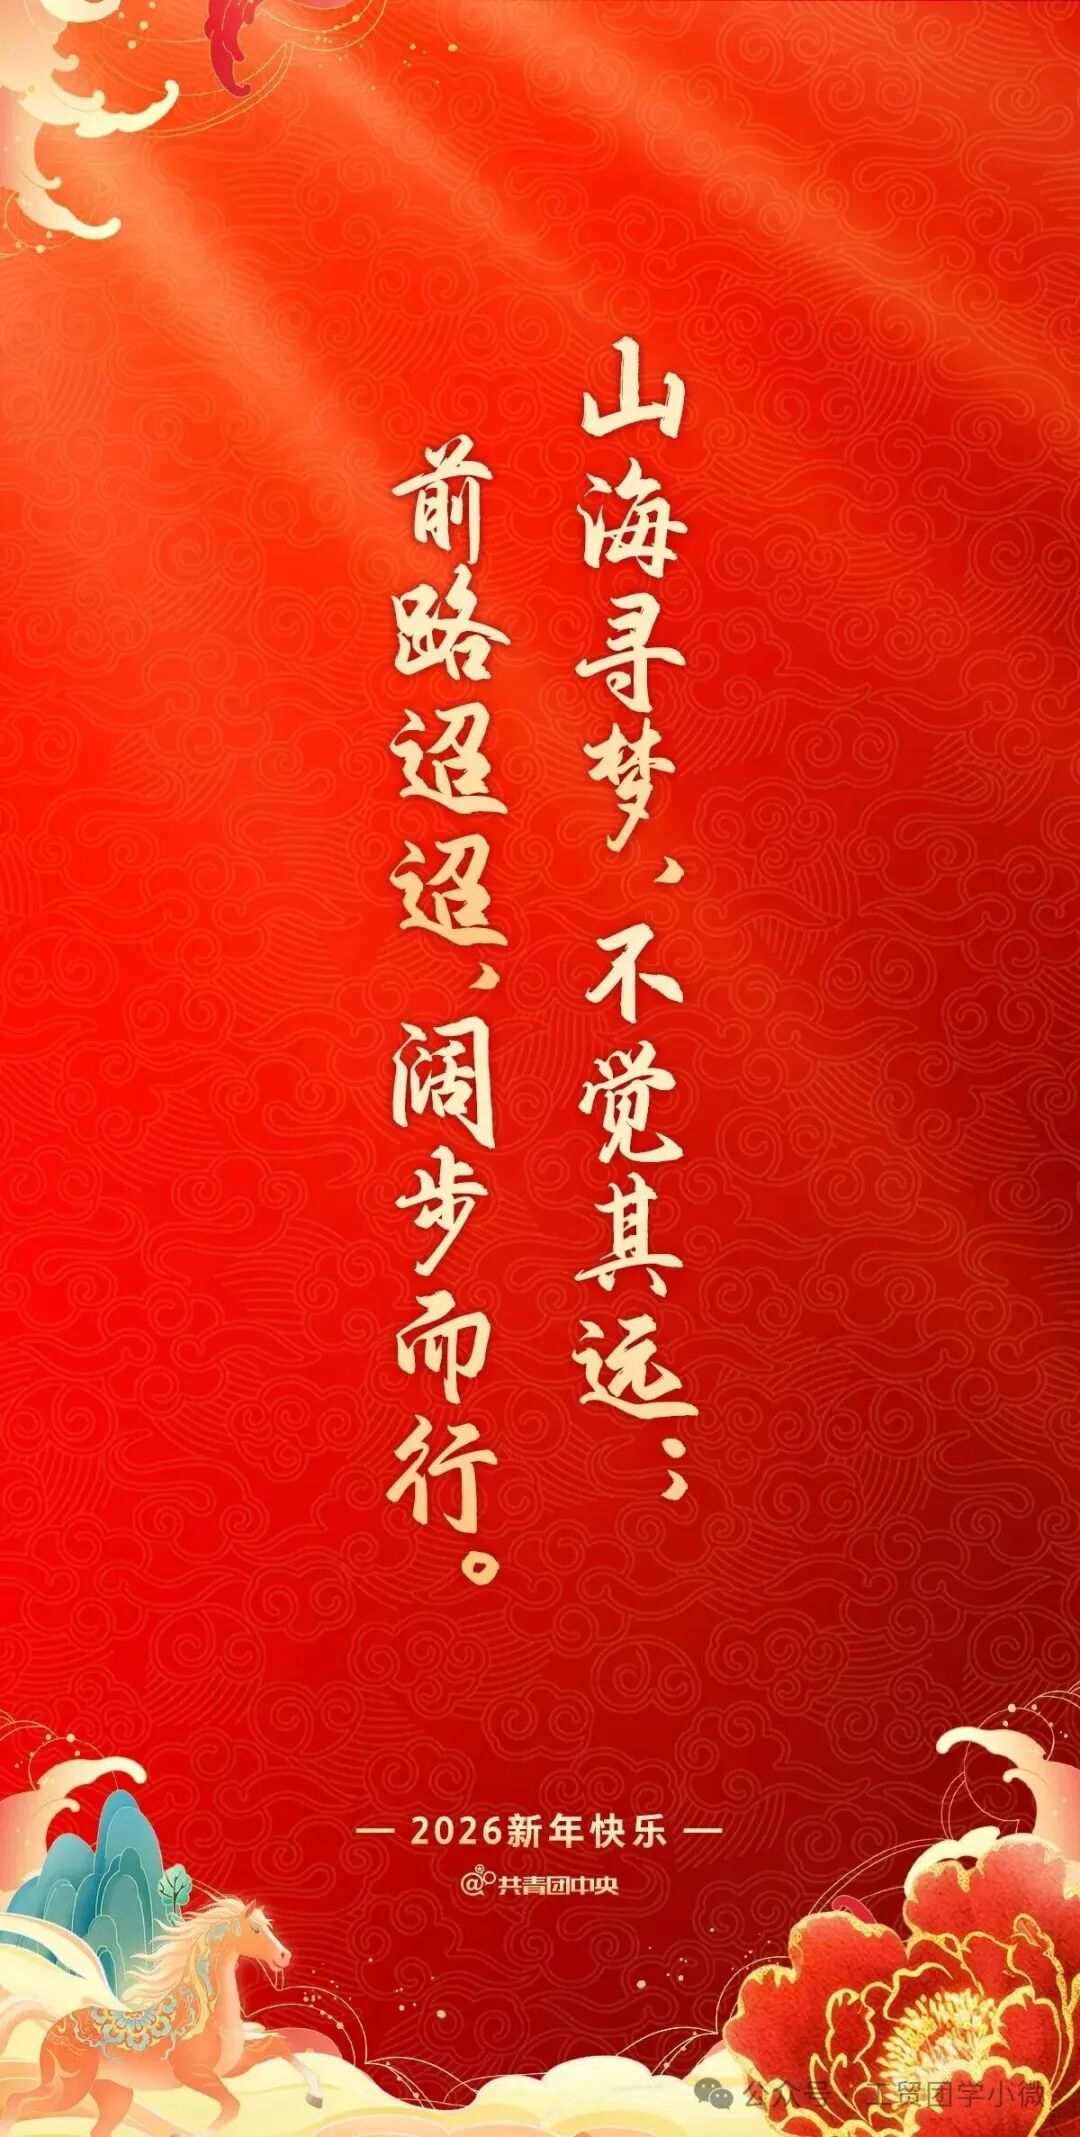 山海寻梦,不觉其远;
前路迢迢,阔步而行。
2026新年快乐
@共青团中央
公众号·工贸团学小微